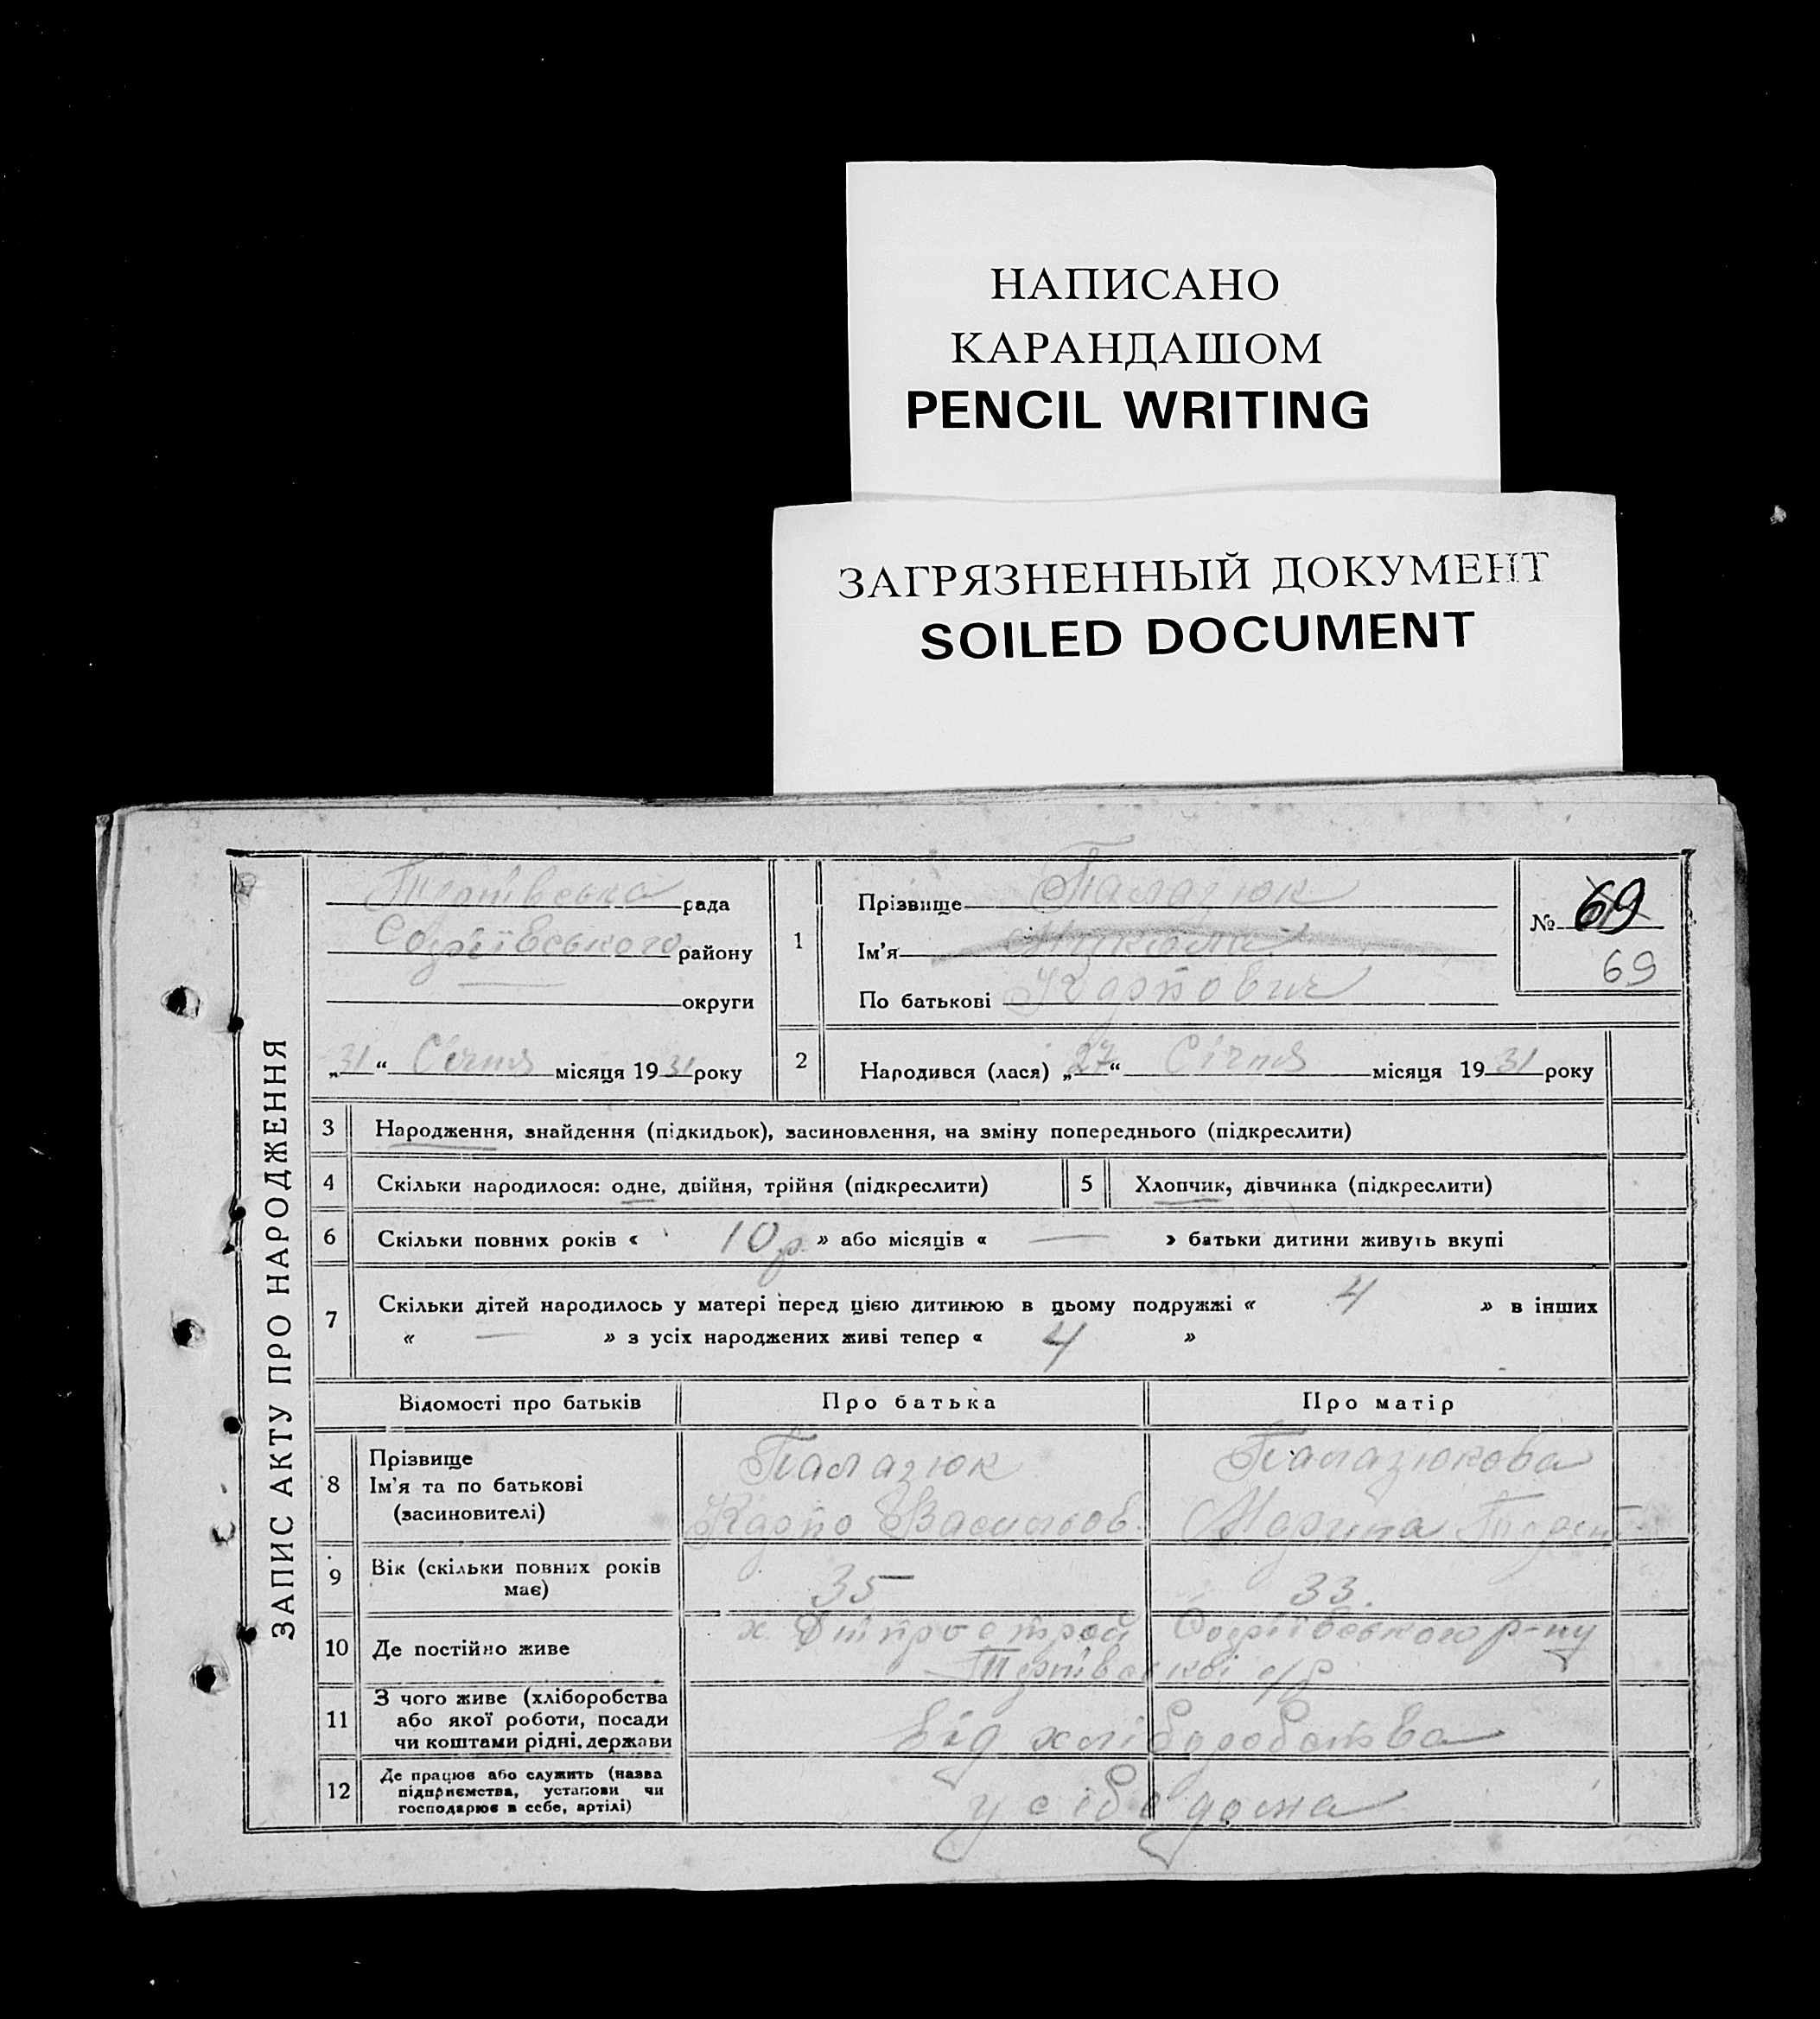 НАПИСАНО
КАРАНДАШОМ
PENCIL WRITING
ЗАГРЯЗНЕННЫЙ ДОКУМЕНТ
SOILED DOCUMENT
ЗАПИС АКТУ ПРО НАРОДЖЕННЯ
рада
Софіївського району
округи
„31“ Січня місяця 1931 року
1
Прізвище Палазюк
Ім'я Микола
По батькові Карпович
№ 69
69
2 Народився (лася) „27“ Січня місяця 1931 року
3 Народження, знайдення (підкидьок), засиновлення, на зміну попереднього (підкреслити)
4 Скільки народилося: одне, двійня, трійня (підкреслити) 5 Хлопчик, дівчинка (підкреслити)
6 Скільки повних років « 10 р. » або місяців « — » батьки дитини живуть вкупі
7 Скільки дітей народилось у матері перед цією дитиною в цьому подружжі « 4 » в інших
« — » з усіх народжених живі тепер « 4 »
Відомості про батьків Про батька Про матір
8 Прізвище
Ім'я та по батькові
(засиновителі)
Палазюк
Карпо Васильов.
Палазюкова
9 Вік (скільки повних років
має)
35 33.
10 Де постійно живе
х. Софіївського р-ну
с/р
11 З чого живе (хліборобства
або якої роботи, посади
чи коштами рідні, держави
від хліборобства
12 Де працює або служить (назва
підприємства, установи чи
господарює в себе, артілі)
у себе дома